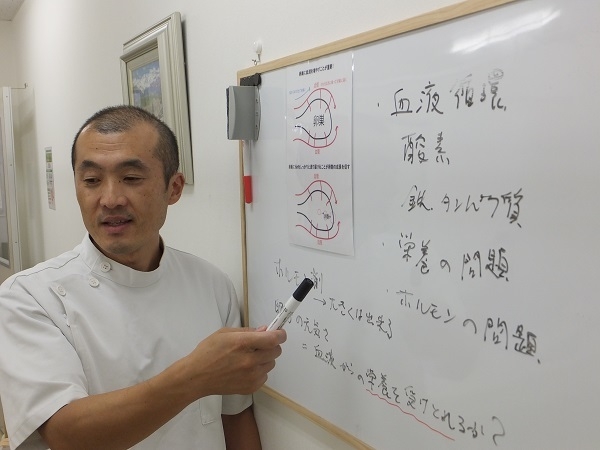 卵巣
・血液循環
酸素
鉄、タンパク質
・栄養の問題
・ホルモンの問題
ホルモン剤
→大きくは出来る
の元気さ
=血液からの栄養を受けとれるか?